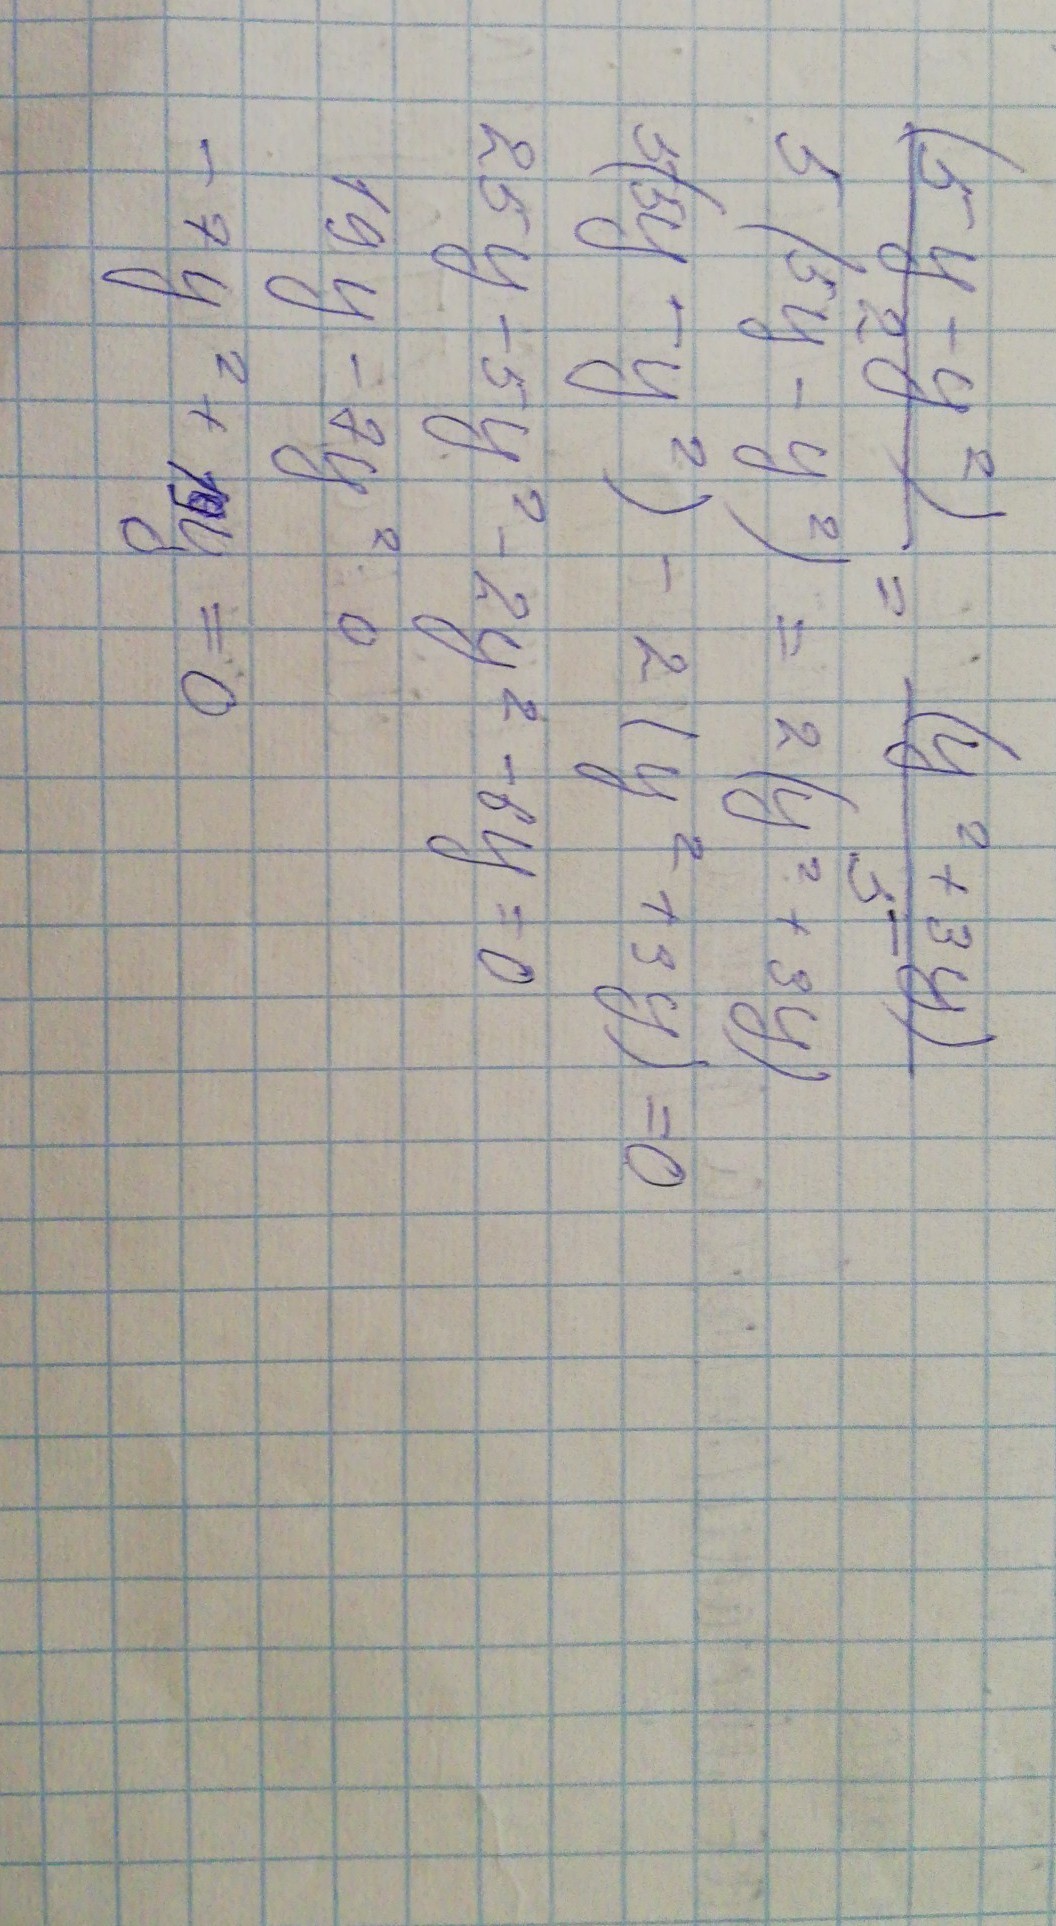 (5y - y²) = (y² + 3y)
2 5
5 (5y - y²) = 2 (y² + 3y)
5(5y - y²) - 2 (y² + 3y) = 0
25y - 5y² - 2y² - 6y = 0
19y - 7y² 0
- 7y² + 19y = 0